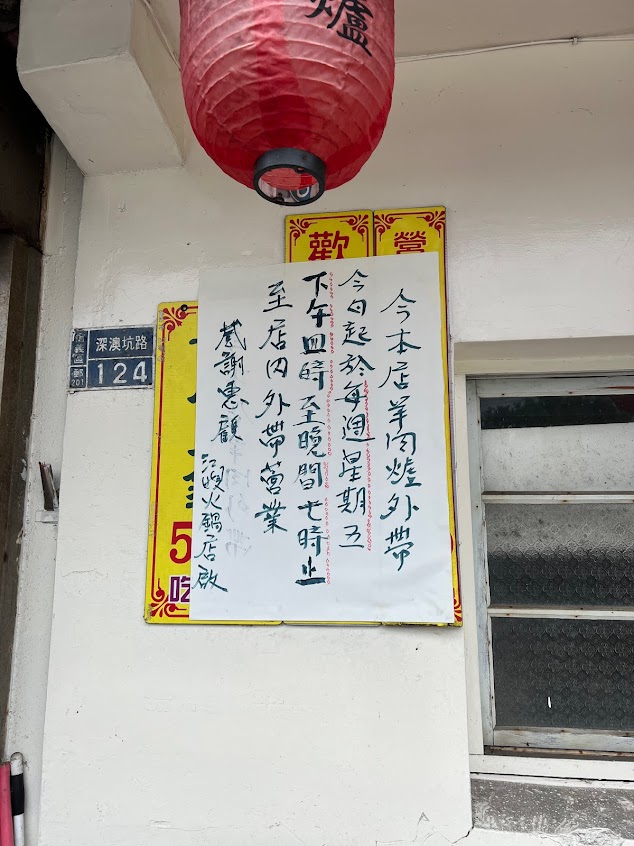 爐
歡
營
今本店羊肉爐外帶
今日起於每週星期五
下午四時至晚間七時止
至店內外帶營業
感謝惠顧
火鍋店啟
信義區
深澳坑路
郵 201
124
5
吃